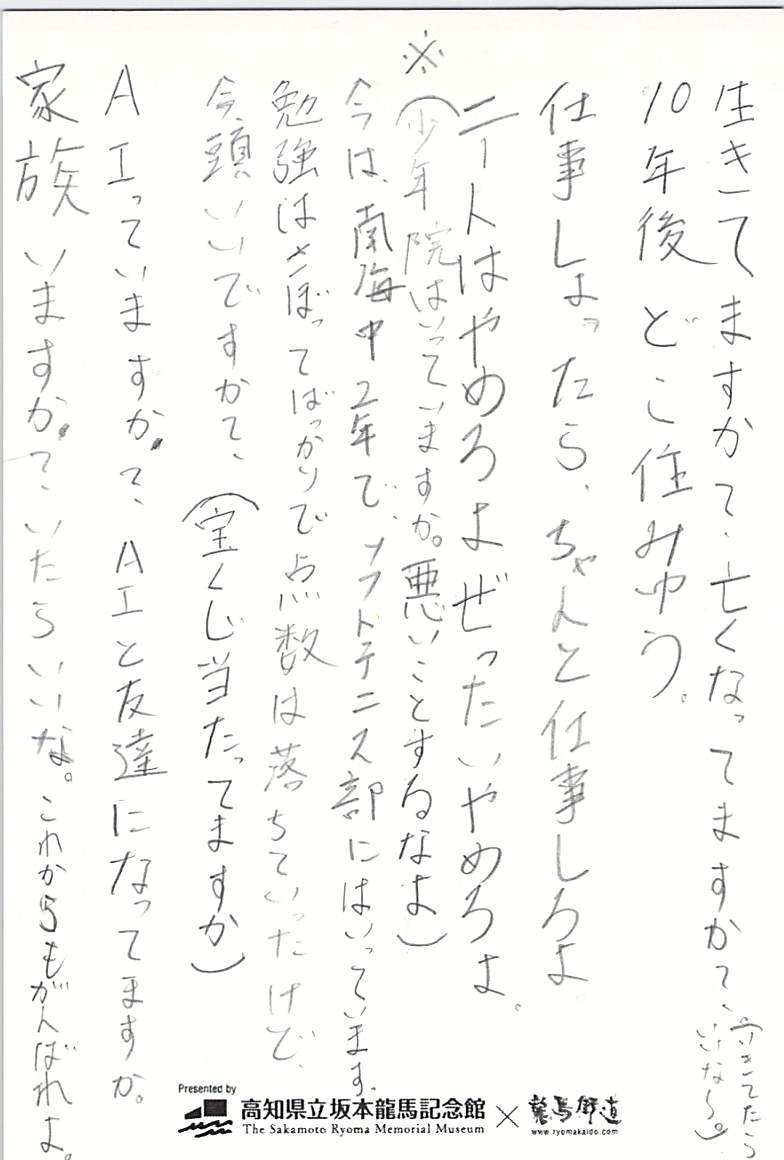 生きてますかて、亡くなってますかて、(いきてたら
いいな〜。)
10年後どこ住みゆう。
仕事しよったら、ちゃんと仕事しろよ
ニートはやめろよぜったいやめろよ。
※(少年院はいっていますか。悪いことするなよ)
今は、南海中2年で、ソフトテニス部にはいっています。
勉強はさぼってばっかりで点数は落ちていったけど、
今、頭いいですかて、(宝くじ当たってますか)
AIっていますかて、AIと友達になってますか。
家族いますかて、いたらいいな。これからもがんばれよ。
Presented by
高知県立坂本龍馬記念館
The Sakamoto Ryoma Memorial Museum
×
龍馬街道
www.ryomakaido.com